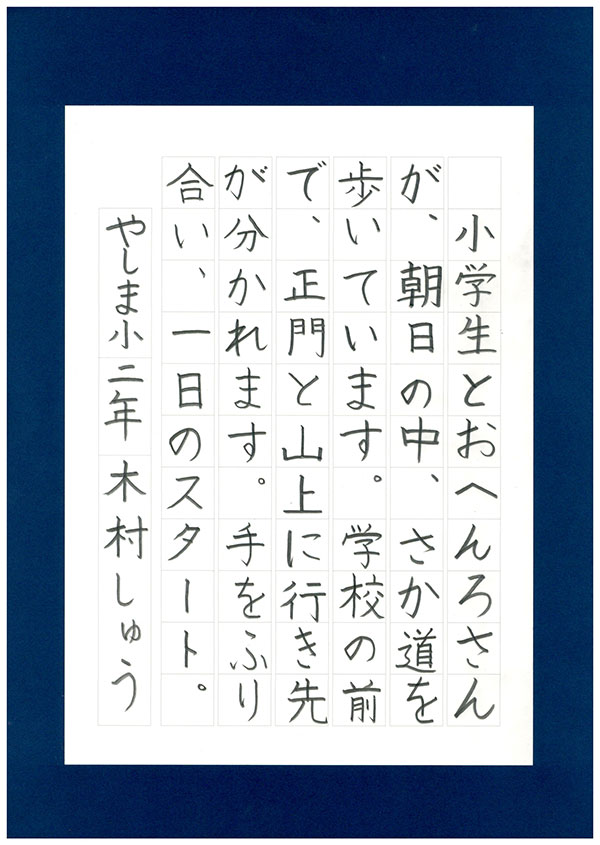 小学生とおへんろさん
が、朝日の中、さか道を
歩いています。学校の前
で、正門と山上に行き先
が分かれます。手をふり
合い、一日のスタート。
やしま小二年 木村しゅう